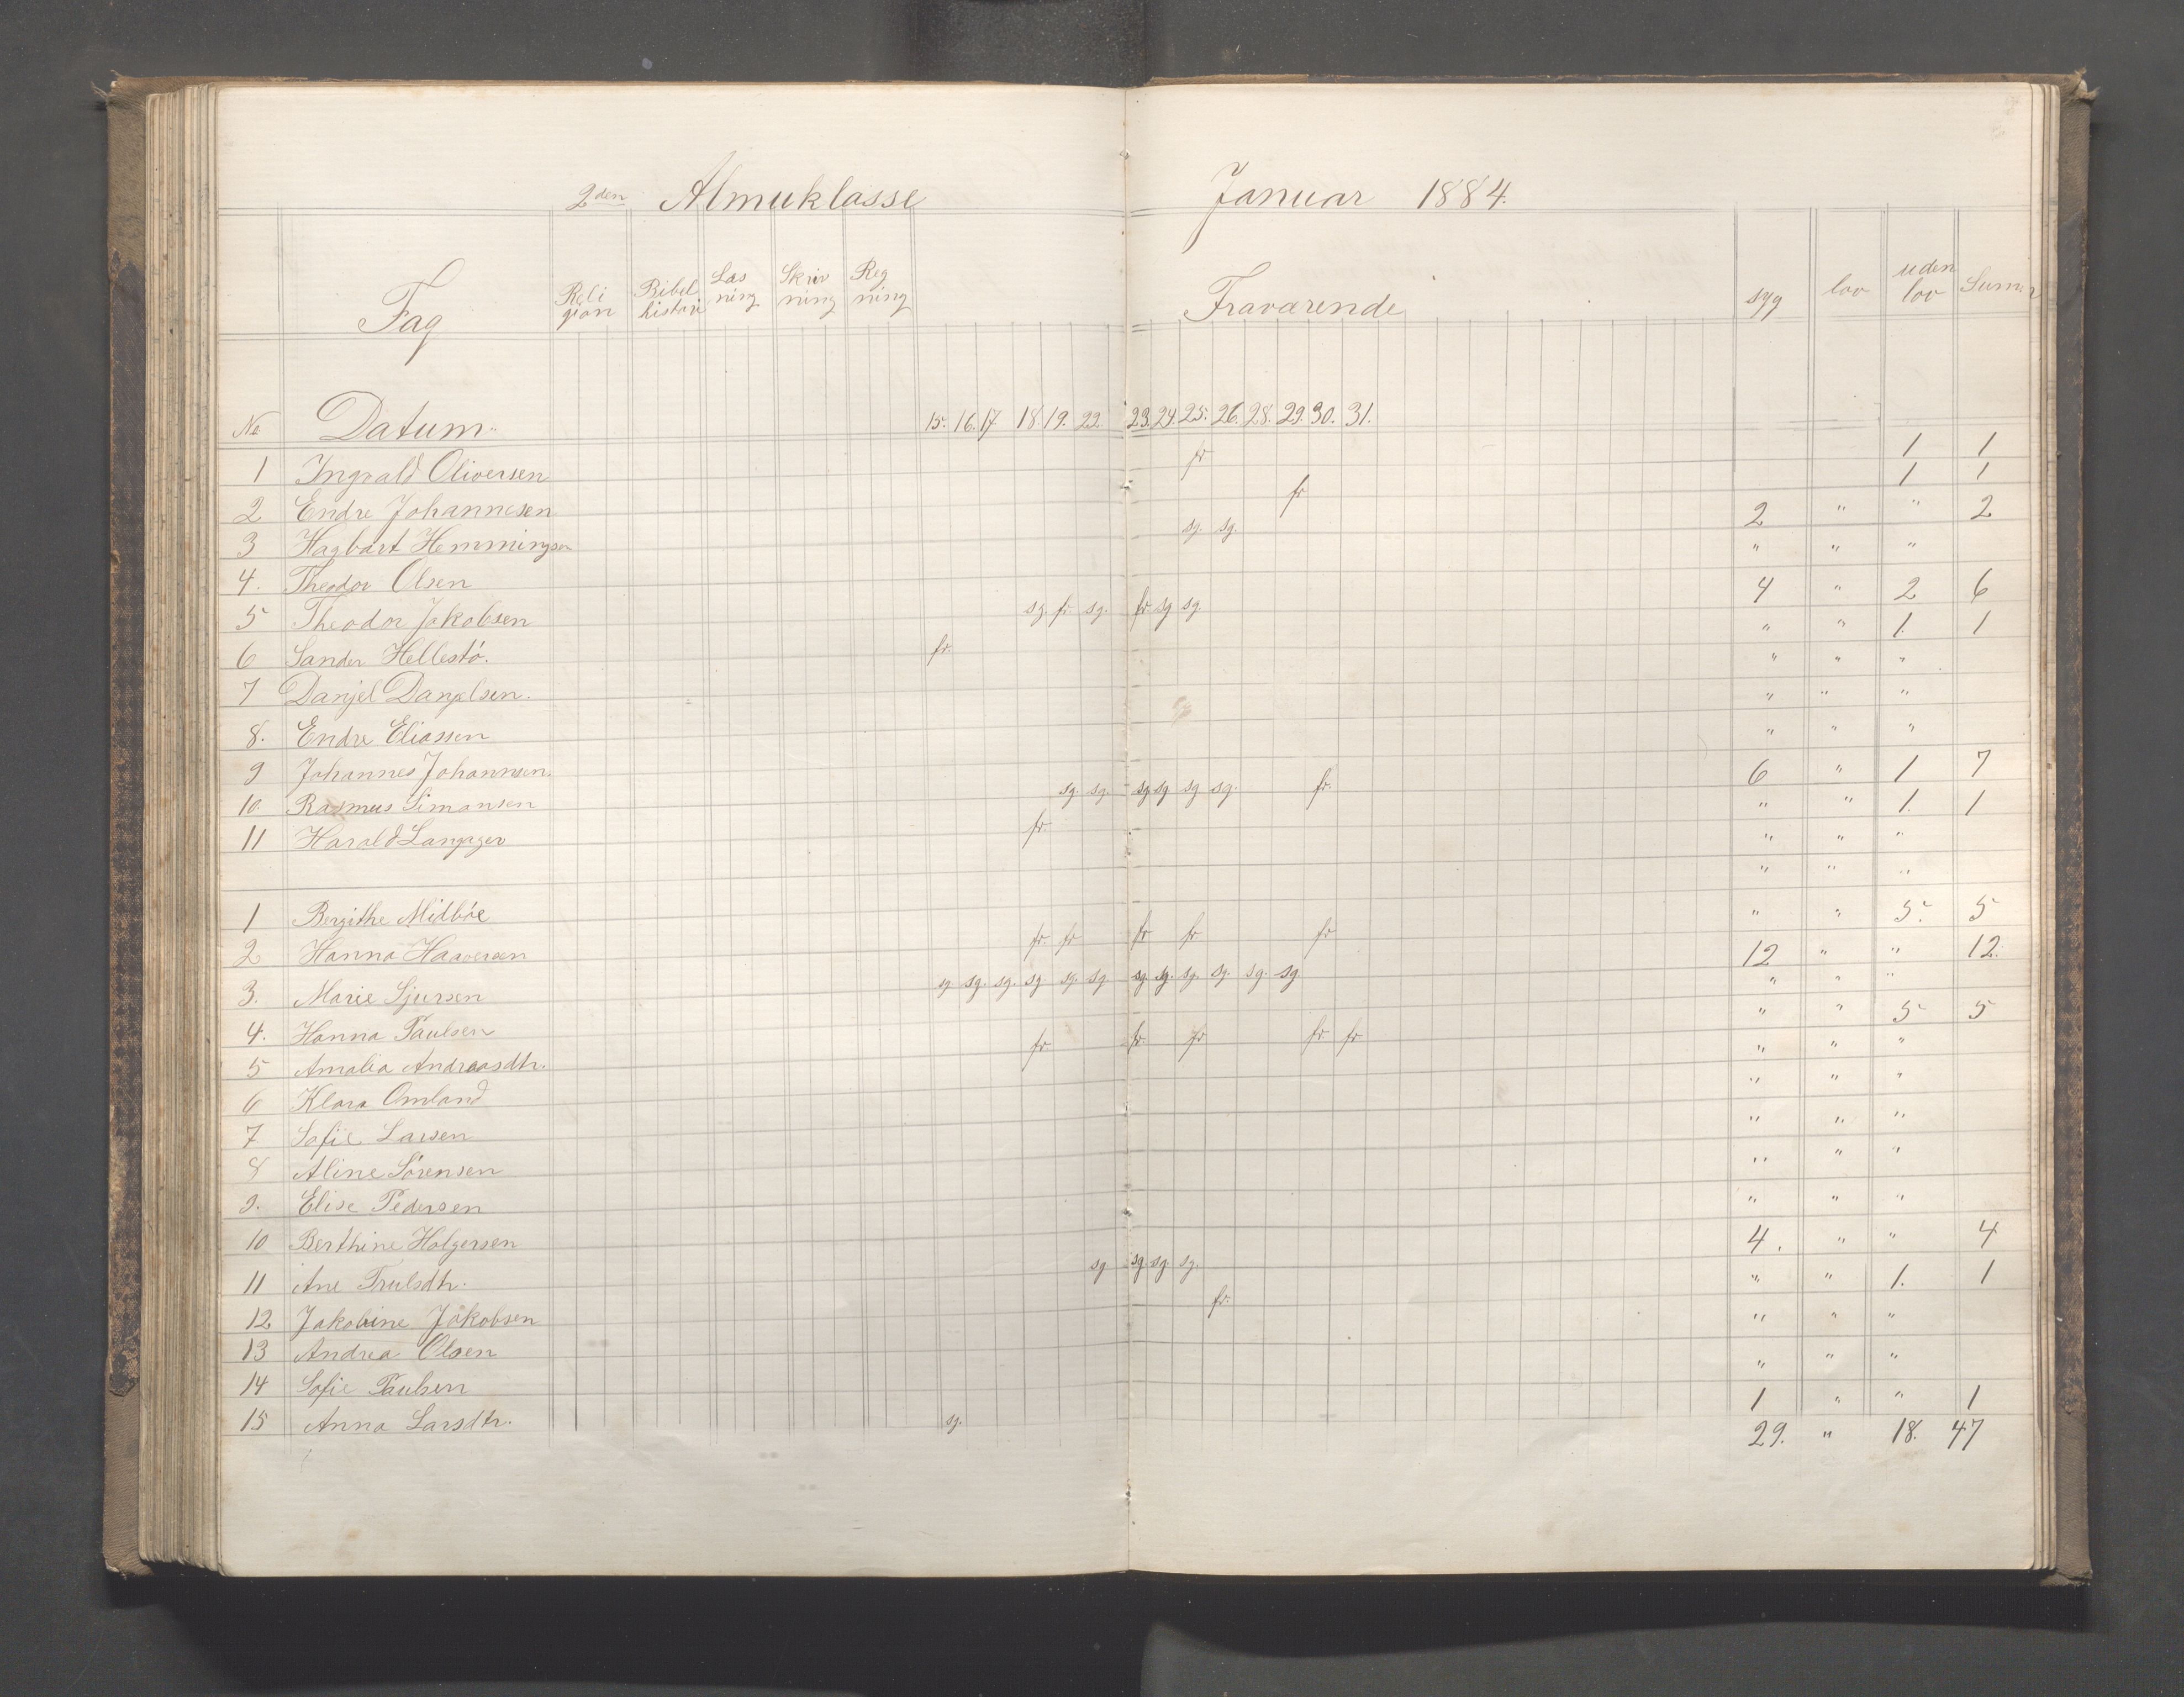 2den Almuklasse Januar 1884.
Fag Reli gion Bibel historie Læs ning Skriv ning Reg ning Fraværende syg lov uden lov Summa
No Datum. 15. 16. 17 18. 19. 22. 23. 24. 25. 26. 28. 29. 30. 31.
1 Ingvald Oliversen fr 1 1
2 Endre Johannesen fr 1 1
3 Hagbart Hemmingsen sg. sg. 2 " " 2
4. Theodor Olsen " " "
5 Theodor Jakobsen sg. fr. sg. fr. sg sg. 4 " 2 6
6 Sander Hellestö. fr. " " 1. 1
7 Danjel Danjelsen. " " "
8. Endre Eliassen " " "
9 Johannes Johannsen. " " "
10. Rasmus Simonsen sg. sg. sg sg sg sg. fr. 6 " 1 7
11 Harald Langager fr. " " 1. 1
" " "
" " "
1 Bergithe Midböe
2 Hanna Haaversen fr. fr fr fr. fr " " 5. 5
3. Marie Sjursen sg sg. sg. sg sg. sg sg. sg. sg. sg. sg. sg. 12 " " 12.
4. Hanna Paulsen " " "
5 Amalia Andreasdtr. fr. fr. fr fr. fr " " 5 5
6 Klara Omland " " "
7 Sofie Larsen " " "
8 Aline Sörensen " " "
9. Elise Pedersen " " "
10 Berthine Holgersen " " "
11 Ane Trulsdtr. sg sg. sg. sg. 4. " " 4
12 Jakobine Jakobsen fr. " " 1. 1
13 Andrea Olsen " " "
14 Sofie Paulsen " " "
15 Anna Larsdtr. sg. 1 " " 1
29. " 18. 47